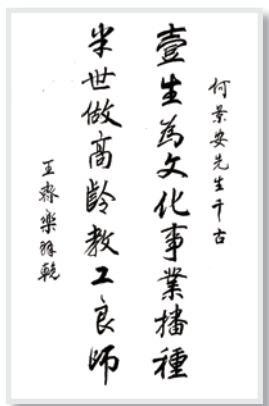 何景安先生千古
壹生為文化事業播種
半世做高齡教工良師